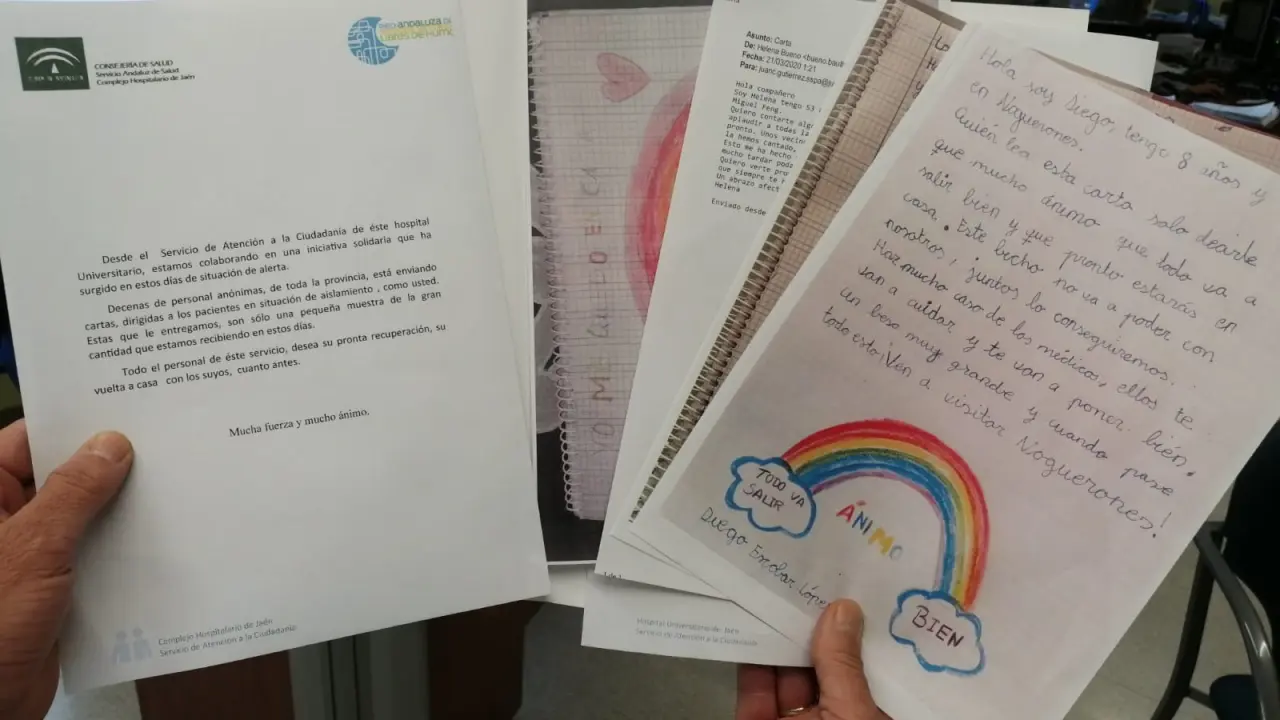 CONSEJERÍA DE SALUD
Servicio Andaluz de Salud
Complejo Hospitalario de Jaén
Desde el Servicio de Atención a la Ciudadanía de éste hospital
Universitario, estamos colaborando en una iniciativa solidaria que ha
surgido en estos días de situación de alerta.
Decenas de personal anónimas, de toda la provincia, está enviando
cartas, dirigidas a los pacientes en situación de aislamiento , como usted.
Estas que le entregamos, son sólo una pequeña muestra de la gran
cantidad que estamos recibiendo en estos días.
Todo el personal de éste servicio, desea su pronta recuperación, su
vuelta a casa con los suyos, cuanto antes.
Mucha fuerza y mucho ánimo.
Complejo Hospitalario de Jaén
Servicio de Atención a la Ciudadanía
YO ME QUEDO EN CA
Asunto: Carta
De: Helena Bueno <bueno.baut
Fecha: 21/03/2020 1:21
Para: juanc.gutierrez.sspa@ju
Hola compañero
Soy Helena tengo 53
Miguel Feng.
Quiero contarte alg
aplaudir a todas la
pronto. Unos vecin
la hemos cantado.
Esto me ha hecho
mucho tardar pod
Quiero verte pro
que siempre te
Un abrazo afect
Helena
Enviado desde
Hospital Universitario de Jaén
Servicio de Atención a la Ciudadanía
Hola soy Diego, tengo 8 años y
en Noguerones.
Quién lea esta carta solo dearle
que mucho ánimo que todo va a
salir bien y que pronto estarás en
casa. Este bicho no va a poder con
nosotros, juntos lo conseguiremos.
Haz mucho caso de los médicos, ellos te
van a cuidar y te van a poner bién.
un beso muy grande y cuando pase
todo esto ¡Ven a visitar Noguerones!
TODO VA
SALIR
ÁNIMO
BIEN
Diego Escobar López